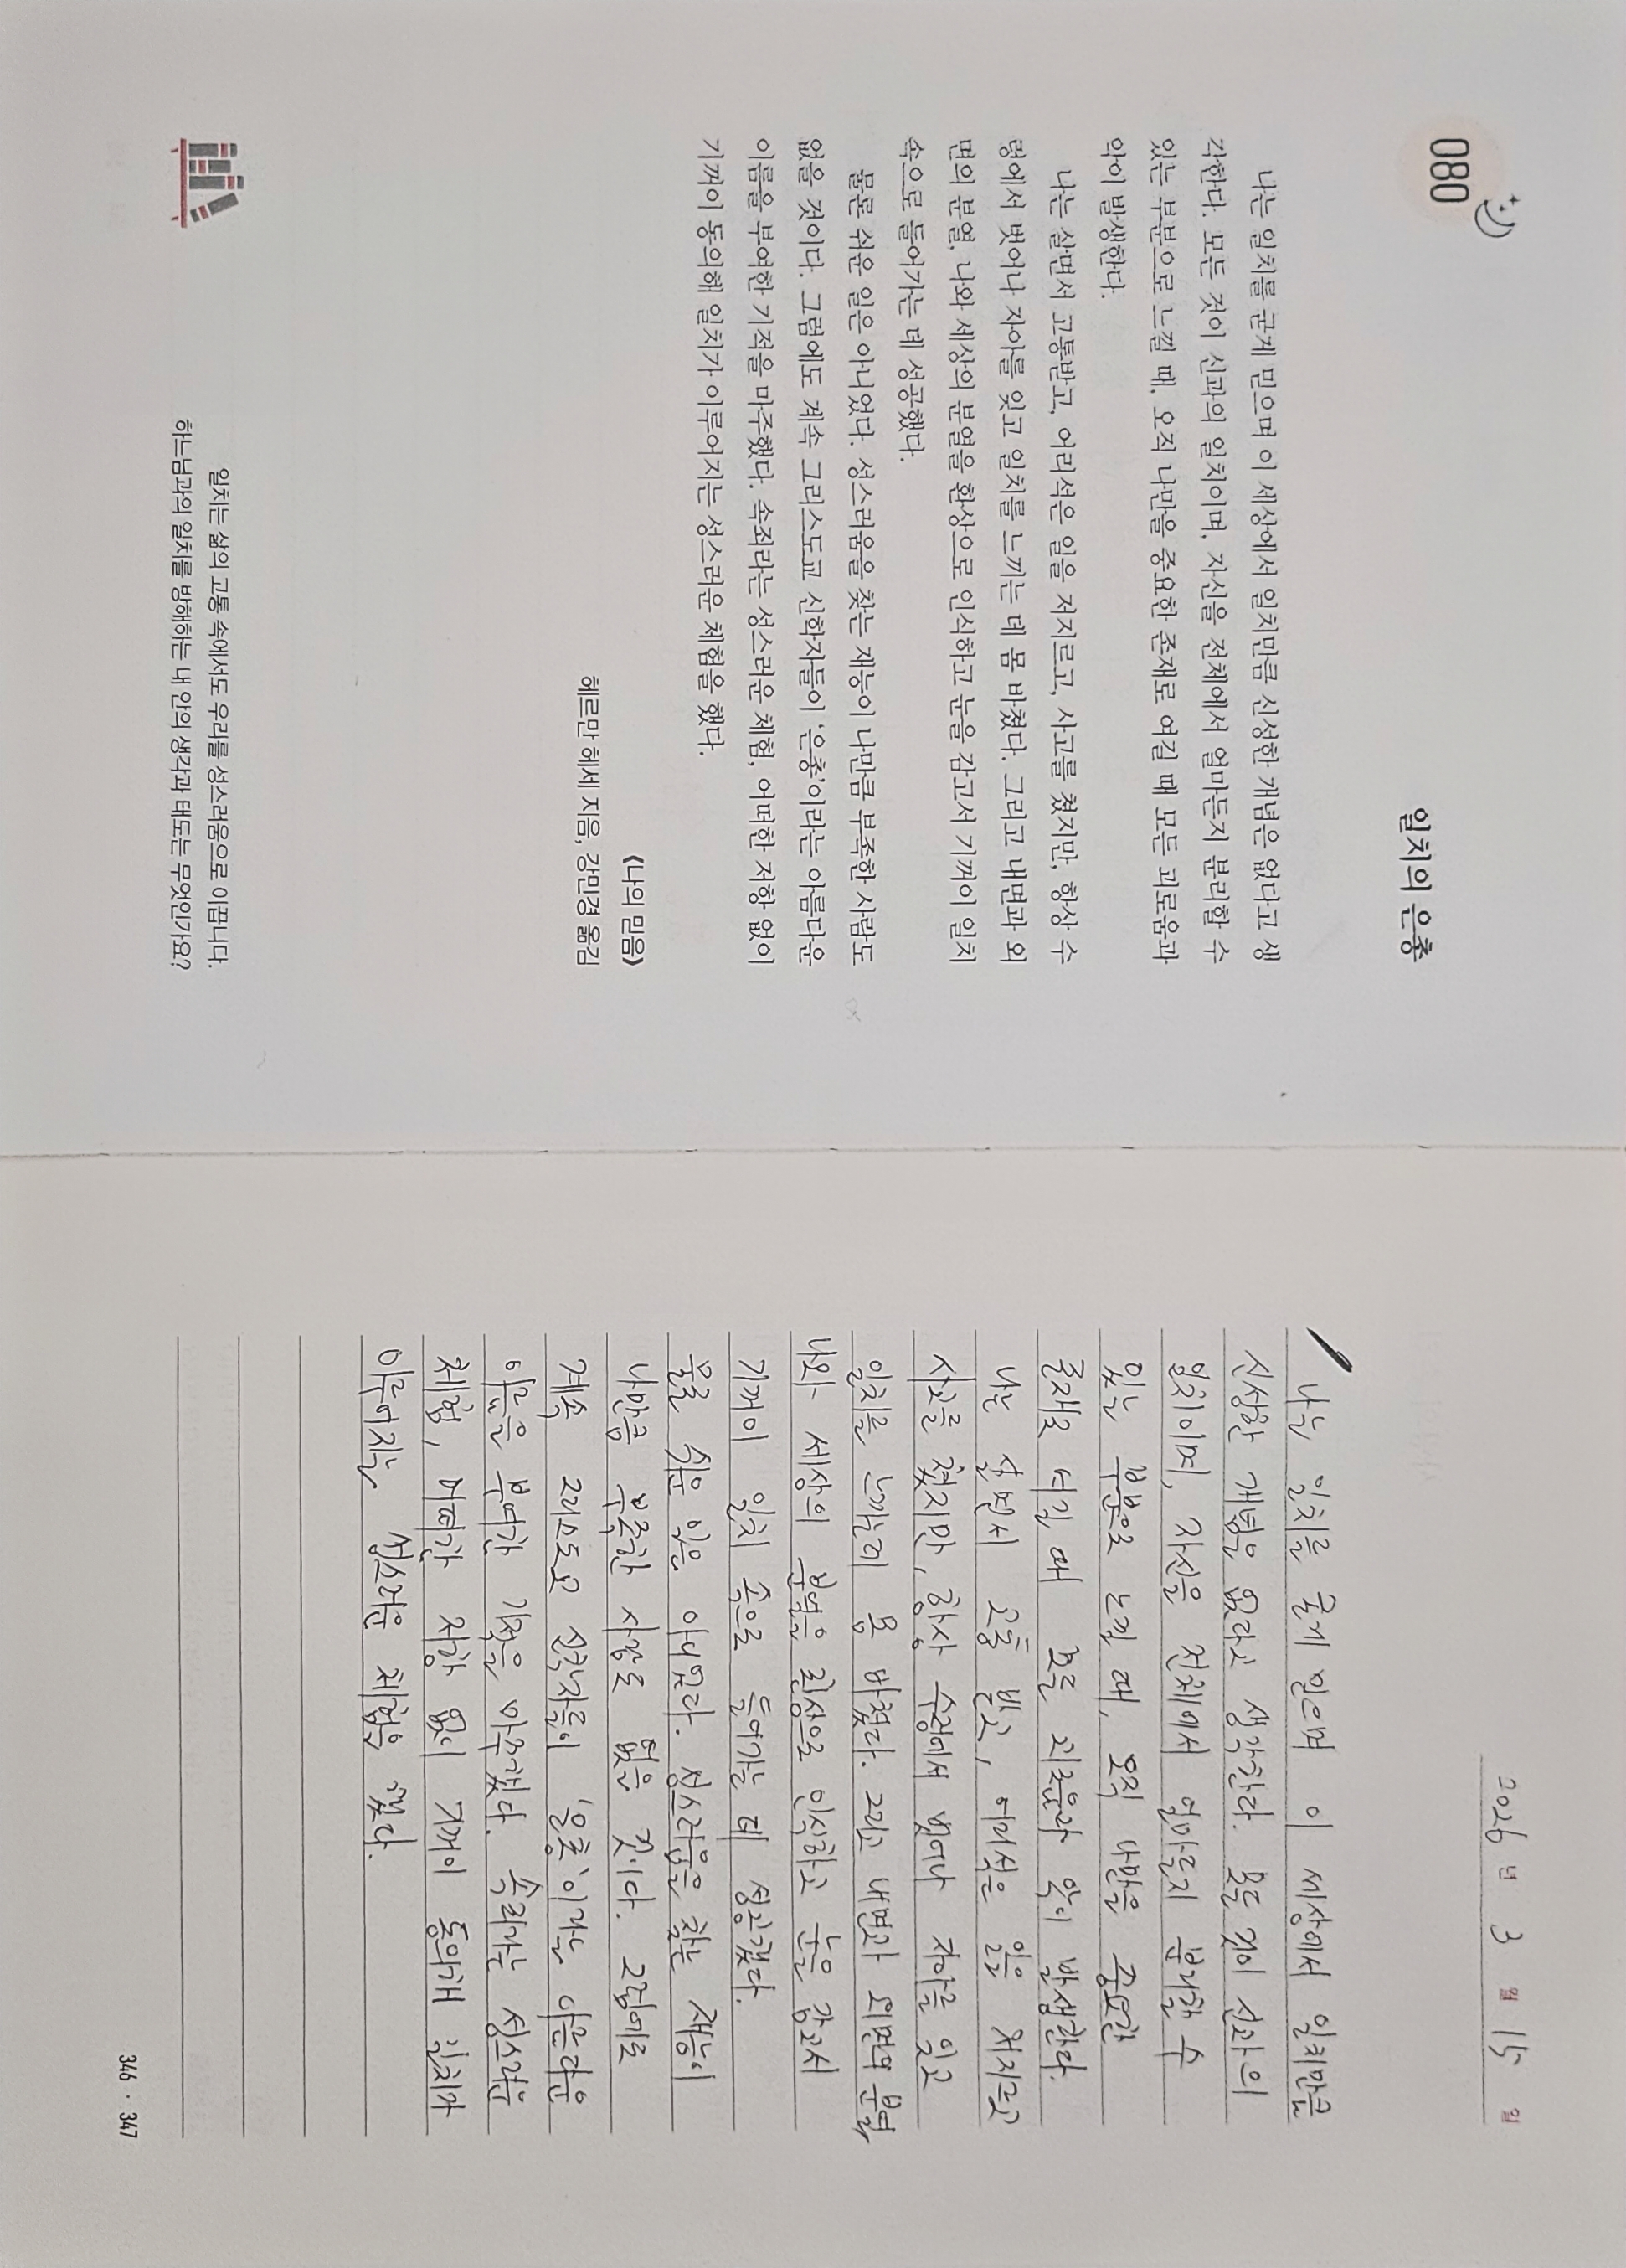 080
일치의 은총
나는 일치를 굳게 믿으며 이 세상에서 일치만큼 신성한 개념은 없다고 생
각한다. 모든 것이 신과의 일치이며, 자신을 전체에서 얼마든지 분리할 수
있는 부분으로 느낄 때, 오직 나만을 중요한 존재로 여길 때 모든 괴로움과
악이 발생한다.
나는 살면서 고통받고, 어리석은 일을 저지르고, 사고를 쳤지만, 항상 수
렁에서 벗어나 자아를 잊고 일치를 느끼는 데 몸 바쳤다. 그리고 내면과 외
면의 분열, 나와 세상의 분열을 환상으로 인식하고 눈을 감고서 기꺼이 일치
속으로 들어가는 데 성공했다.
물론 쉬운 일은 아니었다. 성스러움을 찾는 재능이 나만큼 부족한 사람도
없을 것이다. 그럼에도 계속 그리스도교 신학자들이 ‘은총’이라는 아름다운
이름을 부여한 기적을 마주했다. 속죄라는 성스러운 체험, 어떠한 저항 없이
기꺼이 동의해 일치가 이루어지는 성스러운 체험을 했다.
《나의 믿음》
헤르만 헤세 지음, 강민경 옮김
일치는 삶의 고통 속에서도 우리를 성스러움으로 이끕니다.
하느님과의 일치를 방해하는 내 안의 생각과 태도는 무엇인가요?
2026 년 3 월 15 일
나는 일치를 굳게 믿으며 이 세상에서 일치만큼
신성한 개념은 없다고 생각한다. 모든 것이 신과의
일치이며, 자신을 전체에서 얼마든지 분리할 수
있는 부분으로 느낄 때, 오직 나만을 중요한
존재로 여길 때 모든 괴로움과 악이 발생한다.
나는 살면서 고통 받고, 어리석은 일을 저지르고
사고를 쳤지만, 항상 수렁에서 벗어나 자아를 잊고
일치를 느끼는데 몸 바쳤다. 그리고 내면과 외면의 분열
나와 세상의 분열을 환상으로 인식하고 눈을 감고서
기꺼이 일치 속으로 들어가는 데 성공했다.
물론 쉬운 일은 아니었다. 성스러움을 찾는 재능이
나만큼 부족한 사람도 없을 것이다. 그럼에도
계속 그리스도교 신학자들이 ‘은총’이라는 아름다운
이름을 부여한 기적을 마주했다. 속죄라는 성스러운
체험, 어떠한 저항 없이 기꺼이 동의해 일치가
이루어지는 성스러운 체험을 했다.
346 · 347